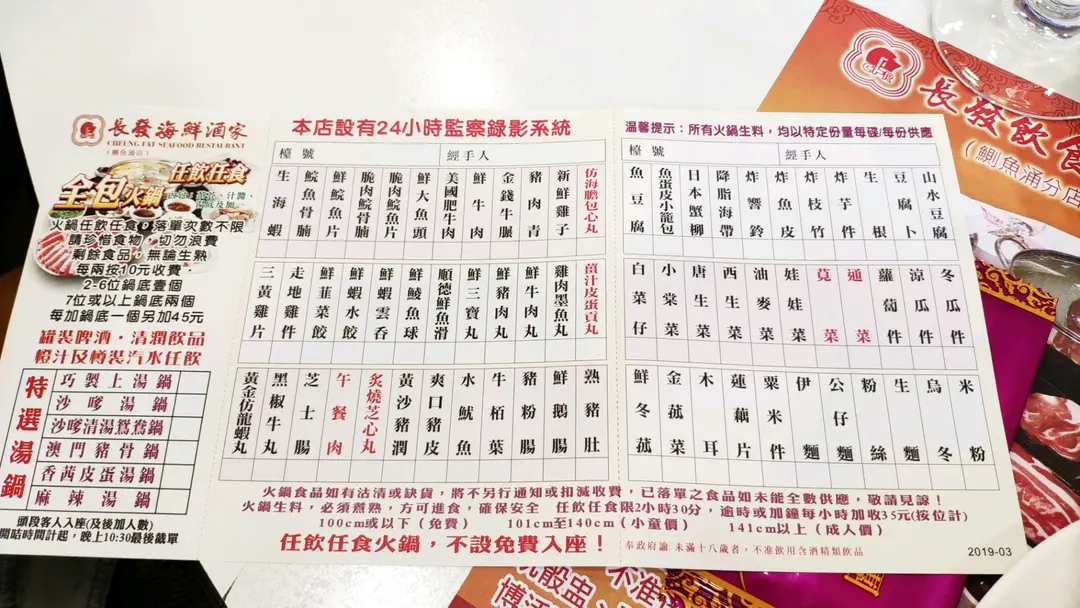 長發海鮮酒家
CHEUNG FAT SEAFOOD RESTAURANT
(鰂魚涌店)
任飲任食
全包火鍋
火鍋任飲任食,落單次數不限
請珍惜食物,切勿浪費
剩餘食品,無論生熟
每兩按10元收費.
2-6位鍋底壹個
7位或以上鍋底兩個
每加鍋底一個另加45元
罐裝啤酒・清潤飲品
橙汁及樽裝汽水任飲
特選湯鍋
巧製上湯鍋
沙嗲湯鍋
沙嗲清湯鴛鴦鍋
澳門豬骨鍋
香茜皮蛋湯鍋
麻辣湯鍋
頭段客人入座(及後加人數)
開咭時間計起,晚上10:30最後截單
本店設有24小時監察錄影系統
檯號
經手人
生海蝦
鯇魚骨腩
鮮鯇魚片
脆肉鯇骨腩
脆肉鯇魚片
鮮大魚頭
美國肥牛肉
鮮牛肉
金錢牛脤
豬肉青
新鮮雞子
仿海膽包心丸
三黃雞片
走地雞件
鮮韮菜餃
鮮蝦水餃
鮮蝦雲吞
鮮鯪魚球
順德鮮魚滑
鮮三寶丸
鮮豬肉丸
鮮牛肉丸
雞肉墨魚丸
薑汁皮蛋貢丸
黃金仿龍蝦丸
黑椒牛丸
芝士腸
午餐肉
炙燒芝心丸
黃沙豬潤
爽口豬皮
水魷魚
牛栢葉
豬粉腸
鮮鵝腸
熟豬肚
溫馨提示:所有火鍋生料,均以特定份量每碟/每份供應
檯號
經手人
魚豆腐
魚蛋皮小籠包
日本蟹柳
降脂海帶
炸響鈴
炸魚皮
炸枝竹
炸芋件
生根
豆卜
山水豆腐
白菜仔
小棠菜
唐生菜
西生菜
油麥菜
娃娃菜
莧菜
通菜
蘿蔔件
涼瓜件
冬瓜件
鮮冬菰
金菰菜
木耳
蓮藕片
粟米件
伊麵
公仔麵
粉絲
生麵
烏冬
米粉
火鍋食品如有沽清或缺貨,將不另行通知或扣減收費,已落單之食品如未能全數供應,敬請見諒!
火鍋生料,必須煮熟,方可進食,確保安全 任飲任食限2小時30分,逾時或加鐘每小時加收35元(按位計)
100cm或以下(免費) 101cm至140cm(小童價) 141cm以上(成人價)
任飲任食火鍋,不設免費入座!
奉政府諭:未滿十八歲者,不准飲用含酒精類飲品
2019-03
長發飲食
(鰂魚涌分店